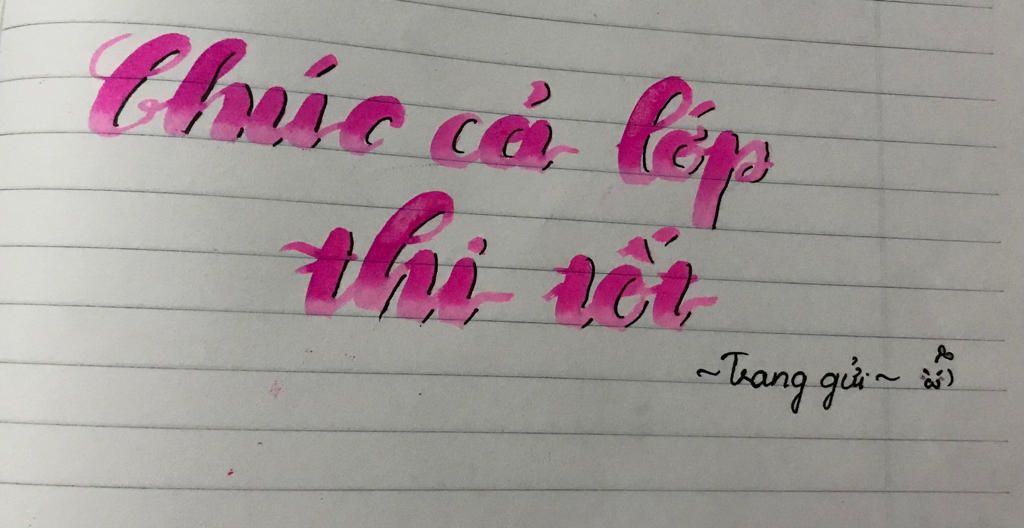 Chúc cả lớp
thi tốt
~Trang gửi~